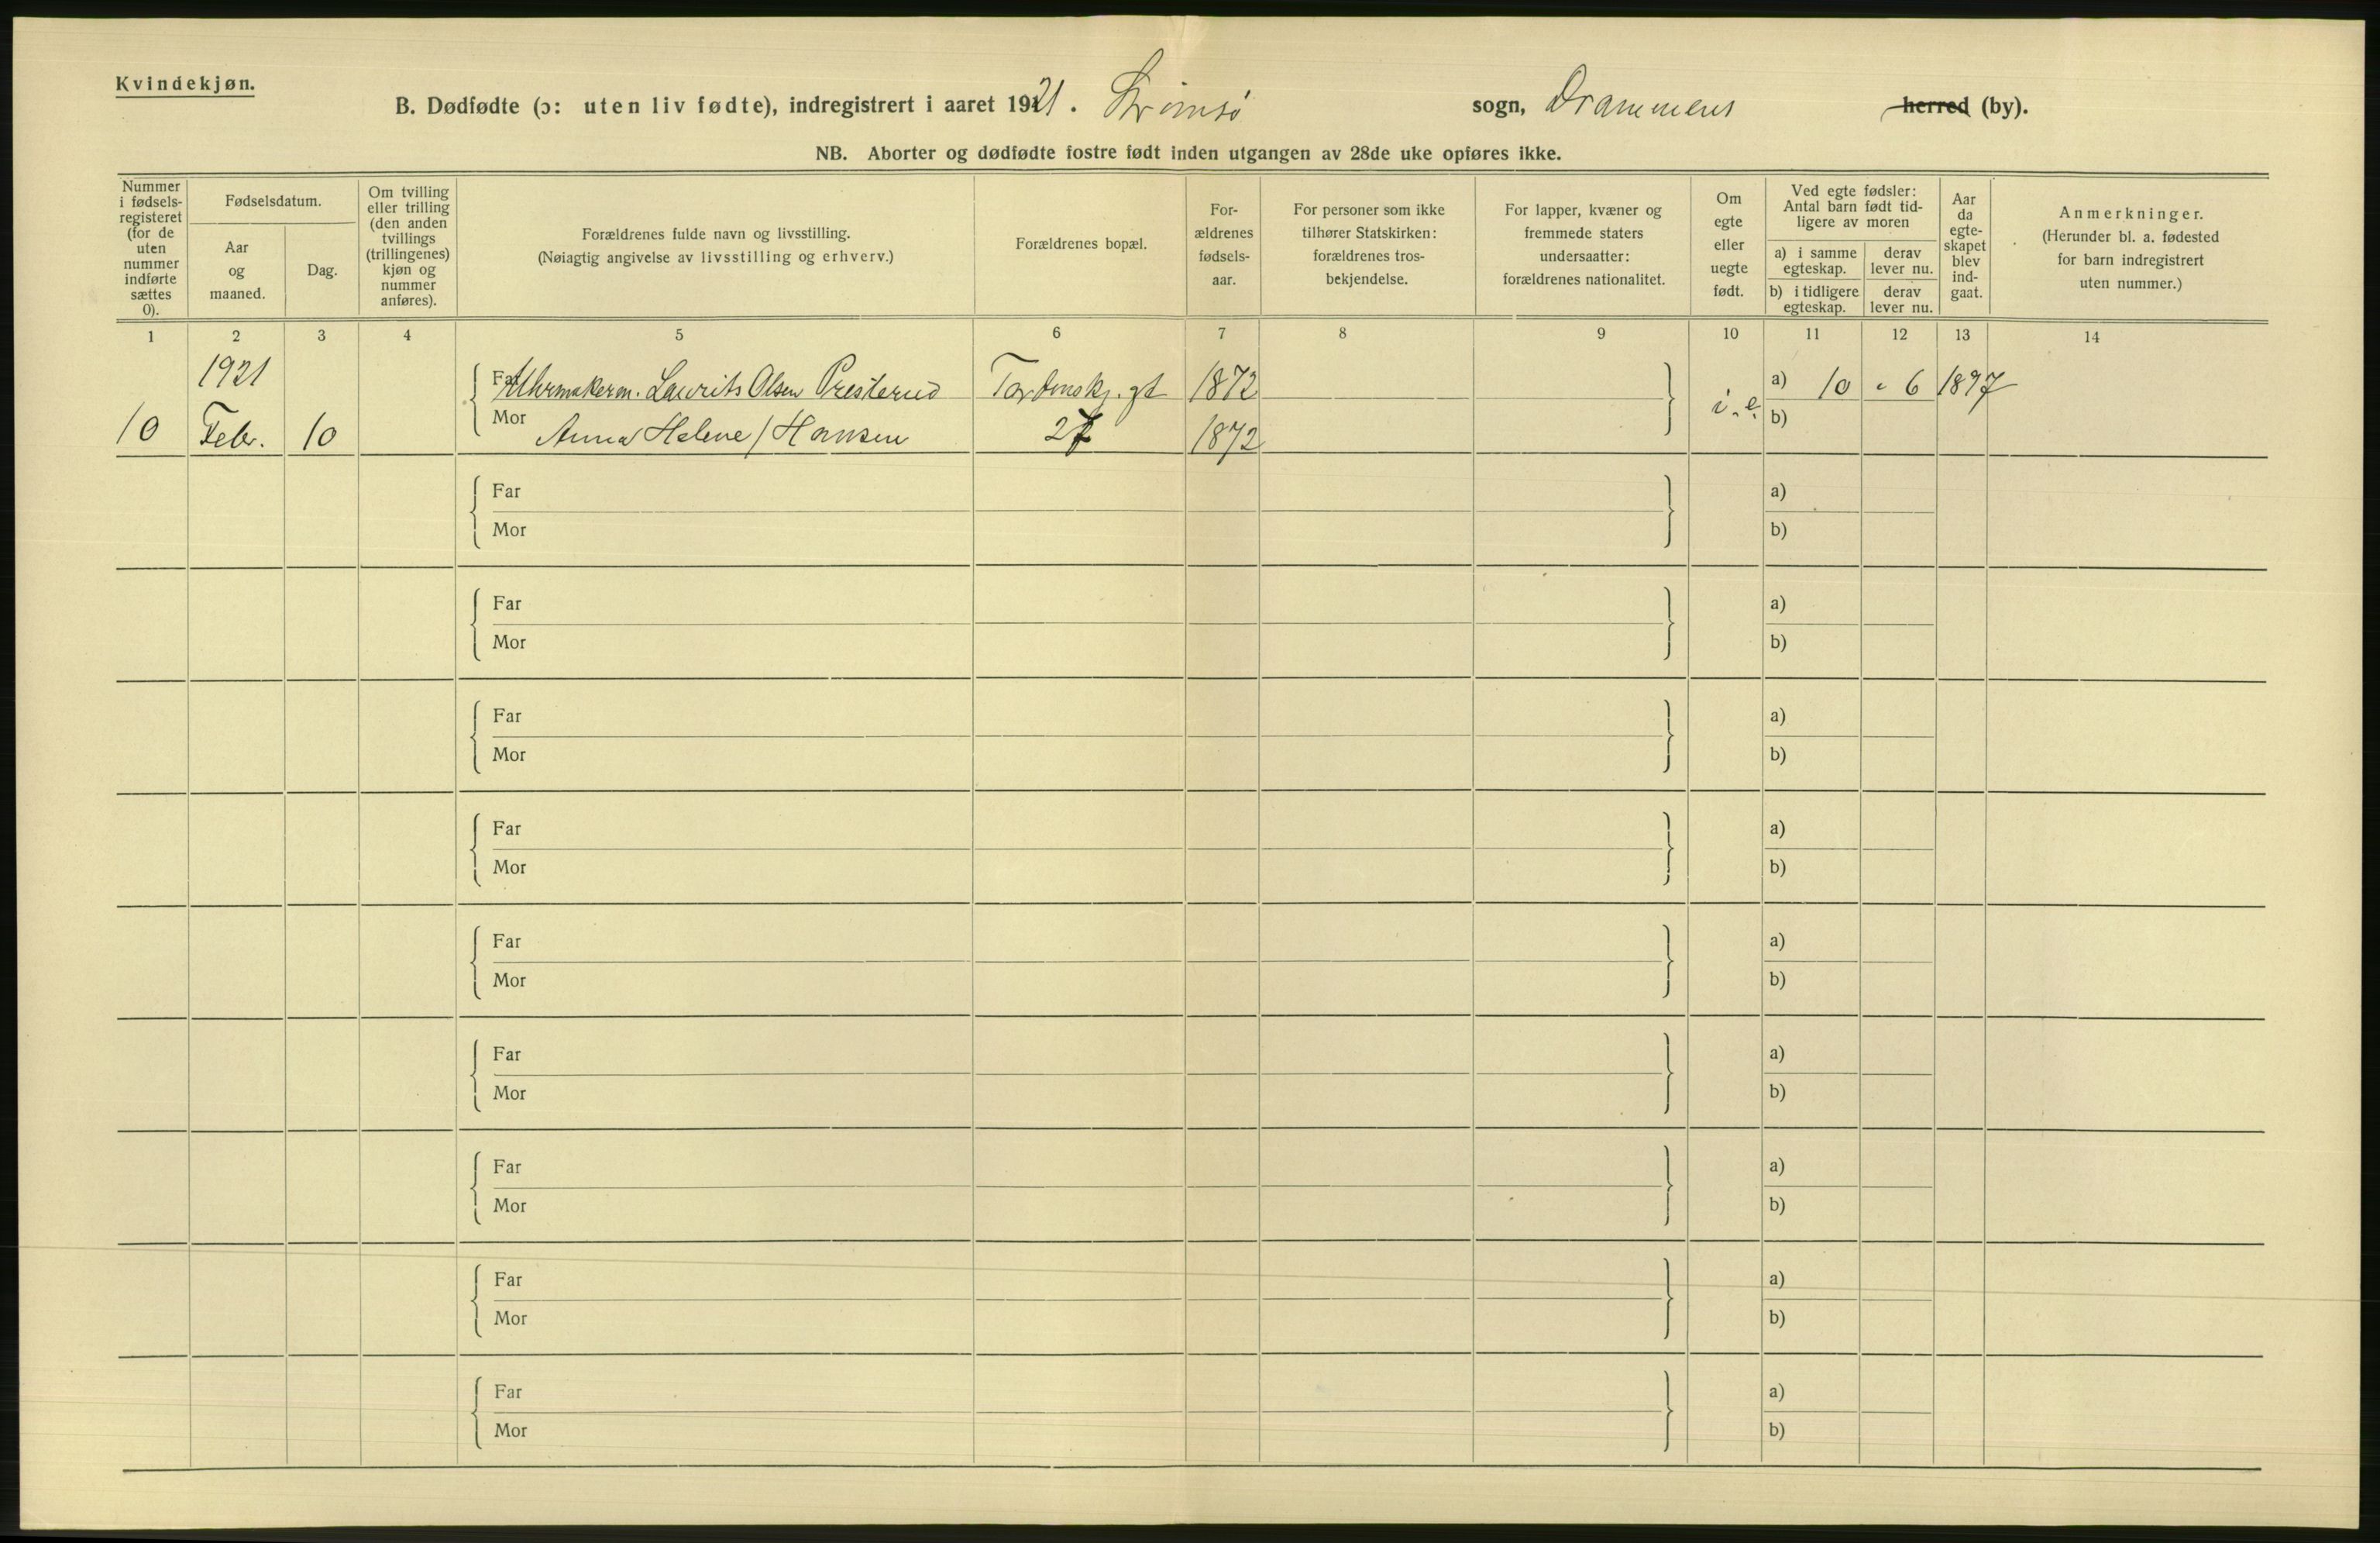 Kvindekjøn.
B. Dødfødte (ɔ: uten liv fødte), indregistrert i aaret 1921. Strømsø sogn, Drammens herred (by).
NB. Aborter og dødfødte fostre født inden utgangen av 28de uke opføres ikke.
Nummer
i fødsels-
registeret
(for de
uten
nummer
indførte
sættes
0).
Fødselsdatum.
Aar
og
maaned.
Dag.
Om tvilling
eller trilling
(den anden
tvillings
(trillingenes)
kjøn og
nummer
anføres).
Forældrenes fulde navn og livsstilling.
(Nøiagtig angivelse av livsstilling og erhverv.)
Forældrenes bopæl.
For-
ældrenes
fødsels-
aar.
For personer som ikke
tilhører Statskirken:
forældrenes tros-
bekjendelse.
For lapper, kvæner og
fremmede staters
undersaatter:
forældrenes nationalitet.
Om
egte
eller
uegte
født.
Ved egte fødsler:
Antal barn født tid-
ligere av moren
a) i samme
egteskap.
derav
lever nu.
b) i tidligere
egteskap.
derav
lever nu.
Aar
da
egte-
skapet
blev
ind-
gaat.
Anmerkninger.
(Herunder bl. a. fødested
for barn indregistrert
uten nummer.)
1 2 3 4 5 6 7 8 9 10 11 12 13 14
1921
Far Uhrmakerm. Laurits Olsen Presterud Tordenskj. gt 1872 a) 10 - 6 1897
i. e.
10 Febr. 10 Mor Anna Helene / Hansen 27 1872 b)
Far a)
Mor b)
Far a)
Mor b)
Far a)
Mor b)
Far a)
Mor b)
Far a)
Mor b)
Far a)
Mor b)
Far a)
Mor b)
Far a)
Mor b)
Far a)
Mor b)